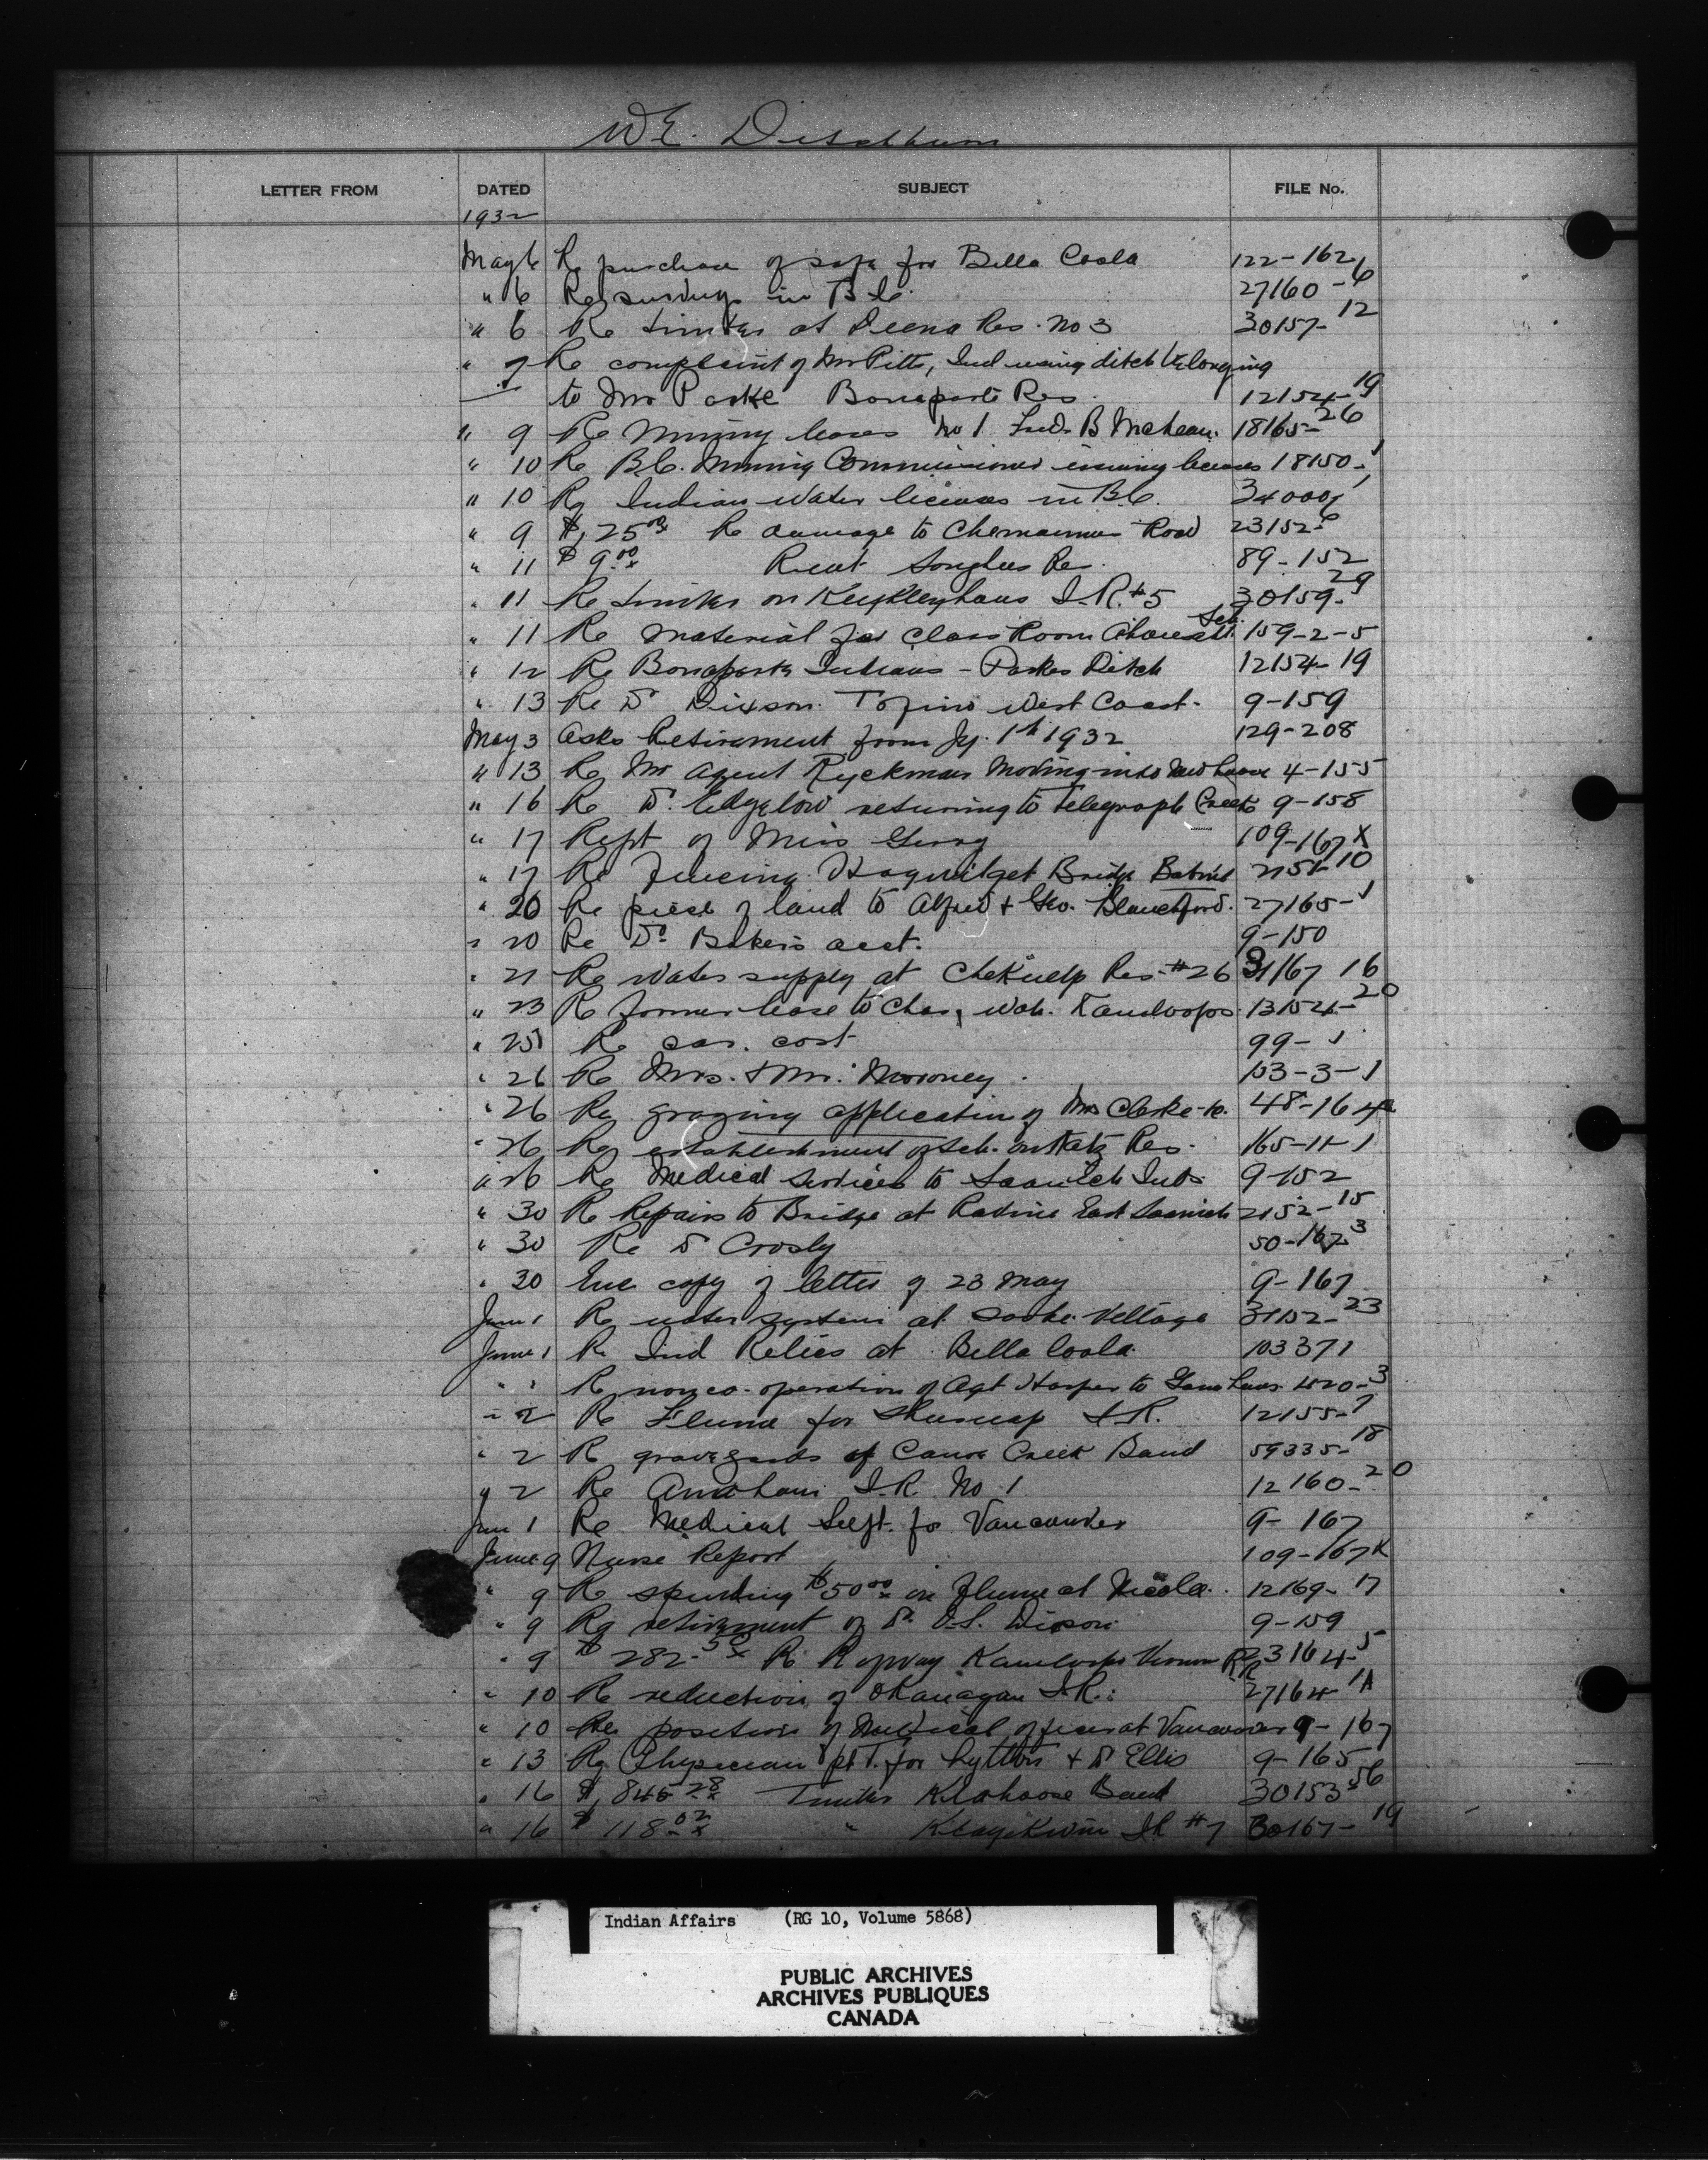 W.E. Ditchburn
LETTER FROM DATED SUBJECT FILE No.
1932
May 6 Re purchase of safe for Bella Coola 122-162
" 6 Re surveys in B.C. 27160-6
" 6 Re timber at Deena Res. No 3 30157-12
" 7 Re complaint of Mr Pitts, Ind using ditch belonging
to Mr Parke Bonaparte Res. 12154-19
" 9 Re Mining leases No 1 Fred. B McLean. 18165-26
" 10 Re B.C. Mining Commissioner issuing licenses 18150-1
" 10 Re Indian Water licenses in B.C. 34000-1
" 9 $1,25.00 Re damage to Chemainus Road 23152-6
" 11 $9.00 Rent Songhees Res. 89-152
" 11 Re timber on I.R. #5 30159-29
" 11 Re Material for Class Room Ahousaht Sch. 159-2-5
" 12 Re Bonaparte Indians - Parkes Ditch 12154-19
" 13 Re Dr Dixson. Tofino West Coast. 9-159
May 3 Asks Retirement from Jy. 1st 1932 129-208
" 13 Re Mr Agent Ryckman Moving into New house 4-155
" 16 Re Dr. Edgelow returning to Telegraph Creek 9-158
" 17 Rept of Miss 109-167X
" 17 Re Fencing Hagwilget Bridge Babine 2151-10
" 20 Re piece of land to Alfred & Geo. Blanchford. 27165-1
" 20 Re Dr Bakers acct. 9-150
" 21 Re Water supply at Chekwelp Res. #26 31167 16
" 23 Re former lease to Chas, Wah. Kamloops 13154-20
" 25 Re car. cost 99-1
" 26 Re Mrs. & Mr. Moroney. 103-3-1
" 26 Re grazing application of Mr Clarke-to. 48-164
" 26 Re establishment of Sch. on Katz Res. 165-11-1
" 26 Re Medical Services to Saanich Inds 9-152
" 30 Re Repairs to Bridge at Ravine East Saanich 2152-15
" 30 Re Dr Crosby 50-167-3
" 30 Enc copy of letter of 23 May 9-167
June 1 Re water system at Sooke Village 31152-23
June 1 Re Ind Relics at Bella Coola 103371
" 1 Re nonco-operation of Agt Harper to Game Laws 1020-3
" 2 Re Flume for Shuswap I.R. 12155-7
" 2 Re graveyards of Canoe Creek Band 59335-18
" 2 Re Anaham I.R. No 1 12160-20
Jun 1 Re Medical Supt. for Vancouver 9-167
June 9 Nurse Report 109-167X
" 9 Re spending $50.00 on Flume at Nicola. 12169-17
" 9 Re retirement of Dr. D.S. Dixson 9-159
" 9 $282.50 Re R of way Kamloops Vernon RR 23164-5
" 10 Re reduction of Okanagan I.R.: 27164-1A
" 10 Re position of Medical officer at Vancouver 9-167
" 13 Re Physician ptt. for Lytton & Dr Ellis 9-165
" 16 $1,845.28 Timber Klahoose Band 30153-56
" 16 $118.02 " Klayekwim IR #7 30167-19
Indian Affairs (RG 10, Volume 5868)
PUBLIC ARCHIVES
ARCHIVES PUBLIQUES
CANADA